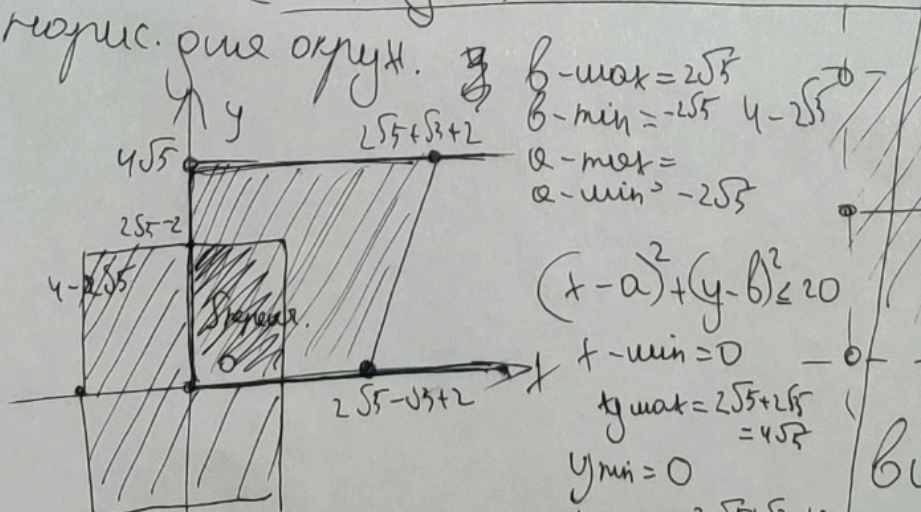 для окруж.
y
4√5
2√5-2
4-2√5
2√5+√3+2
2√5-√3+2
x
b-max=2√5
b-min=-2√5 4-2√5
a-max=
a-min=-2√5
(x-a)²+(y-b)²≤20
x-min=0
max=2√5+2√5
=4√5
ymin=0